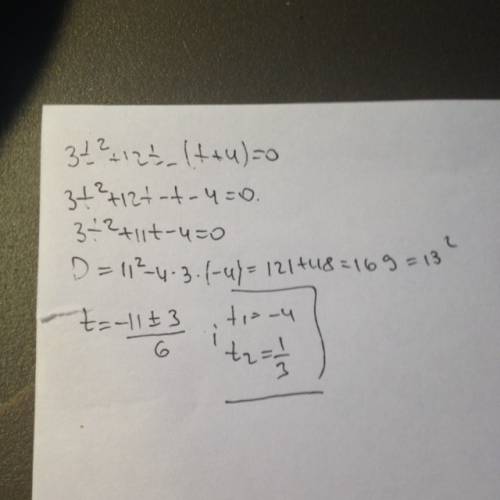 3t²+12t-(t+4)=0
3t²+12t-t-4=0.
3t²+11t-4=0
D=11²-4·3·(-4)=121+48=169=13²
t=-11±3/6 ; t1=-4
t2=1/3